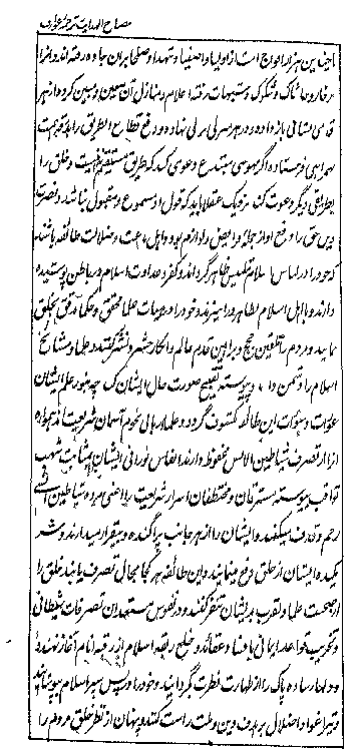 مصباح الهدایت ترجمه عوارف
با چندین هزار افواج است از اولیا و اصفیا و شهدا و صلحا بران جاده رفته اند و آنرا
از خار و خاشاک و شکوک و شبهات رفته اعلام و منازل آن معین و مبین کرده از هر
قدمی نشانی باز داده و در هر منزلی نزلی نهاده و در دفع قطاع الطریق را بدرقه همت
همراهی فرستاده اگر مهوسی مبتدع دعوی کند که طریق مستقیم نه اینست و خلق را
بطریقی دیگر دعوت کند نزدیک عقلا باید که قول او مسموع و مقبول نباشد و نصرت
دین حق را دفع او از جمله فرایض و لوازم بود و اهل بدعت و ضلالت طائفه باشند
که خود را در لباس اسلام بتلبیس ظاهر گردانند و کفر و عداوت اسلام در باطن پوشیده
دارند و با اهل اسلام بظاهر در آمیزند و خود را در هیئات علمای محقق و حکمای مدقق بخلق
نمایند و مردم را تلقین حجج و براهین قدم عالم و انکار حشر و نشر کنند و علما و مشایخ
اسلام را دشمن دارند و پیوسته تقبیح صورت حال ایشان کنند چه بنور علم ایشان
عورات و سوآت این طائفه مکشوف گردد و علمای ربانی نجوم آسمان شریعت اند همواره
آنرا از تصرف شیاطین الانس محفوظ دارند انفاس نورانی ایشان بمثابت شهب
ثواقب پیوسته مسترقان و مختطفان اسرار شریعت را اعنی مرده و شیاطین انس
رجم و قذف میکنند و ایشان را از هر جانب پراگنده و بیقرار میدارند و شر
مکیده ایشان از خلق دفع مینمایند و این طائفه هر کجا مجال تصرف یابند خلق را
از صحبت علما و تقرب بر ایشان تنفیر کنند و در نفوس مستعد این تصرفات شیطانی
و تخریب قواعد ایمانی و افساد عقائد و خلع ربقه اسلام از رقبه انام آغاز نهند
و دلهای ساده پاک را از طهارت فطرت بگردانند و خود را در پس سپر اسلام بپوشانند
و تیر اغوا و اضلال بر هدف دین و ملت راست کنند و پنهان از نظر خلق مردم را